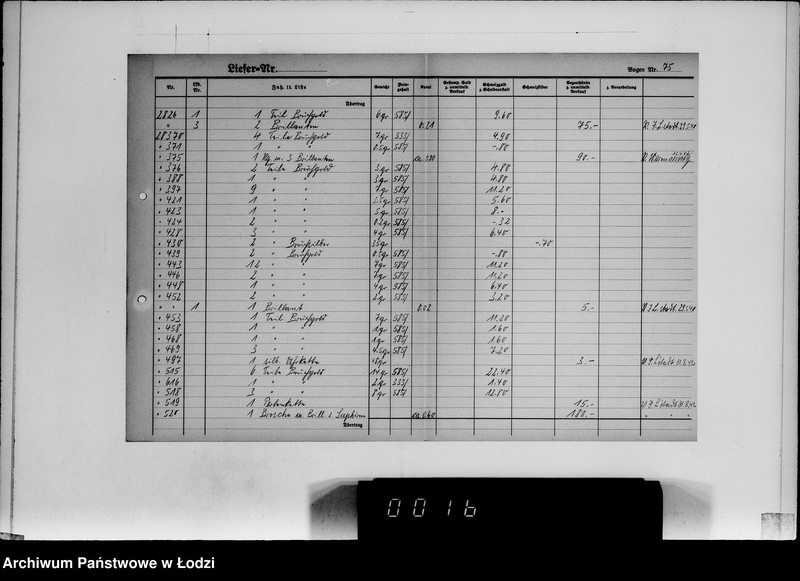 Liefer=Nr.
Bogen Nr. 75
Nr. Lfd. Nr. Feingehalt Gewicht Karat Schmelzsilber z. Verarbeitung
Übertrag
2826 1 1 Teil Bruchgold 6 gr 585/ 9.60
" 3 2 Brillanten 0.21 75.-
28370 4 Teile Bruchgold 7 gr 333/ 4.90
" 371 1 " " 0.5 gr 585/ -.80
" 375 1 Rg. m. 3 Brillanten 90.-
" 376 2 Teile Bruchgold 3 gr 585/ 4.80
" 388 1 " " 3 gr 585/ 4.80
" 397 9 " " 7 gr 585/ 11.20
" 421 1 " " 3.5 gr 585/ 5.60
" 423 1 " " 5 gr 585/ 8.-
" 424 2 " " 0.2 gr 585/ -.32
" 428 3 " " 4 gr 585/ 6.40
" 430 2 " Bruchsilber 35 gr -.70
" 439 2 " Bruchgold 0.5 gr 585/ -.80
" 443 12 " " 7 gr 585/ 11.20
" 446 2 " " 7 gr 585/ 11.20
" 448 1 " " 4 gr 585/ 6.40
" 452 2 " " 2 gr 585/ 3.20
" " 1 1 Brillant 0.02 5.-
" 453 1 Teil Bruchgold 7 gr 585/ 11.20
" 458 1 " " 1 gr 585/ 1.60
" 468 1 " " 1 gr 585/ 1.60
" 469 3 " " 4.5 gr 585/ 7.20
" 497 1 silb. 3.-
" 515 6 Teile Bruchgold 14 gr 585/ 22.40
" 616 1 " " 2 gr 333/ 1.40
" 518 3 " " 8 gr 585/ 12.80
" 519 1 15.-
" 520 1 Brosche m. Brill. u. Saphiren ca 0.60 180.- " " "
Übertrag
0016
Archiwum Państwowe w Łodzi